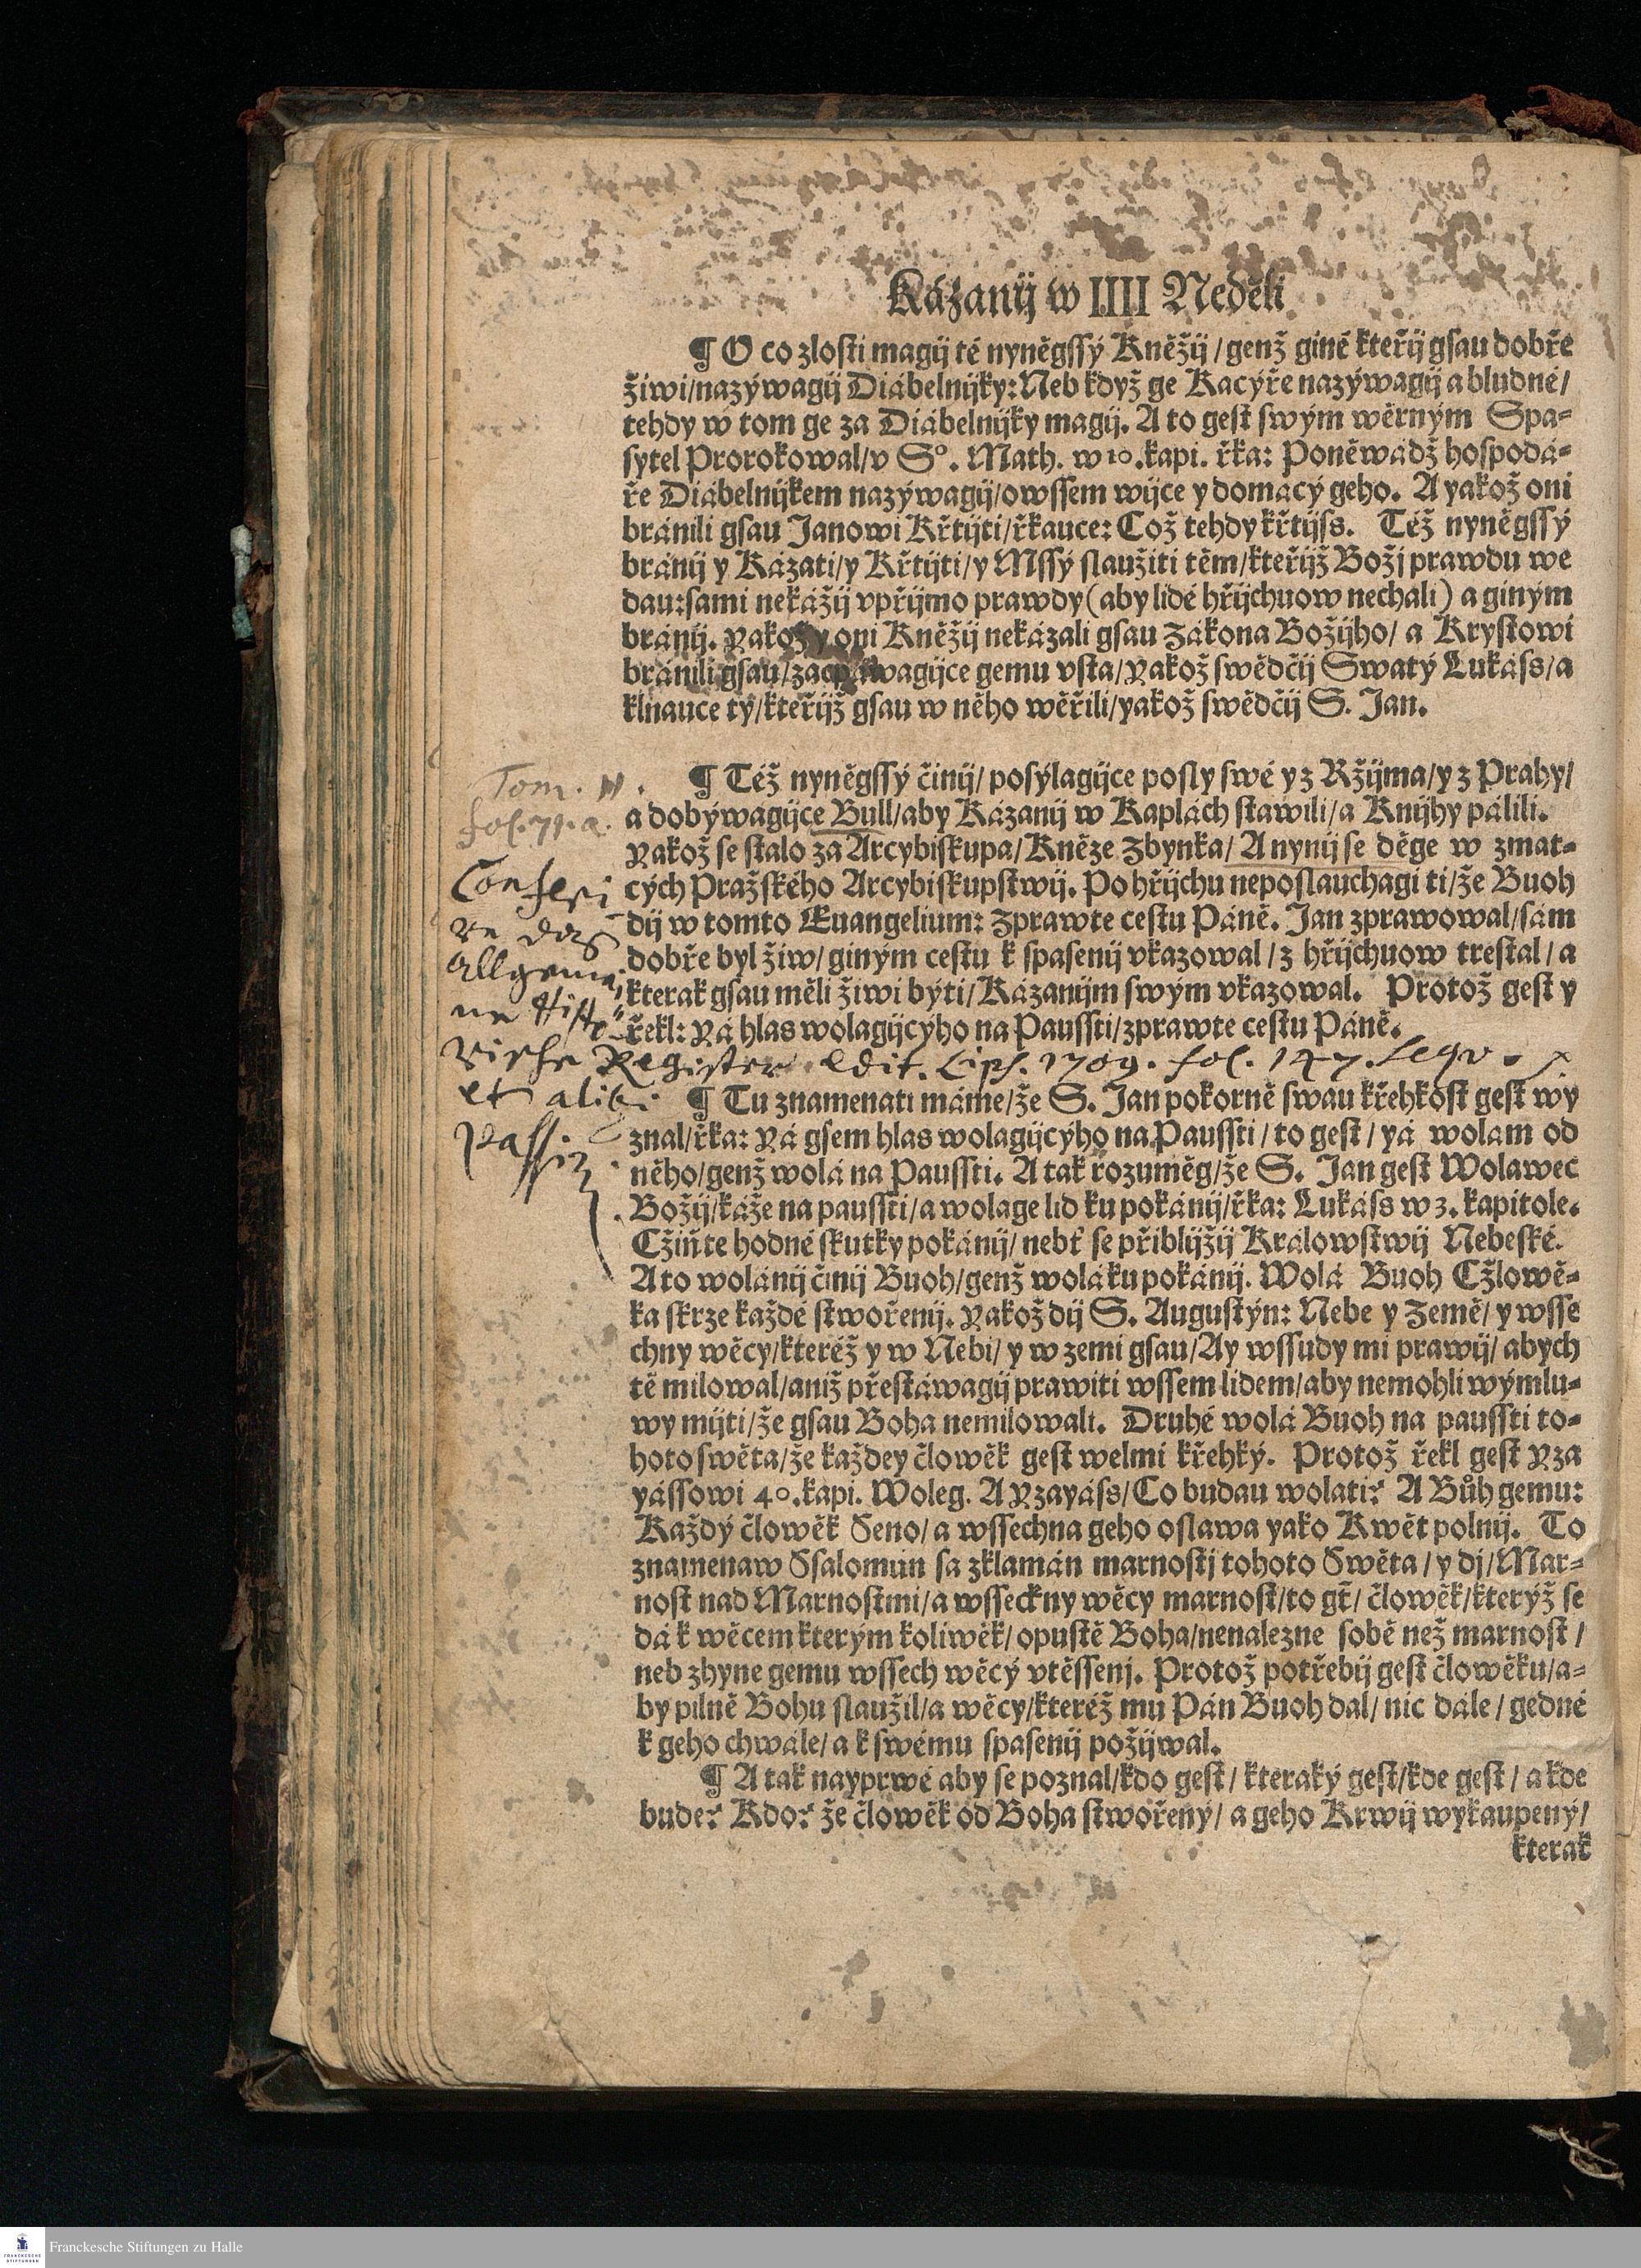 Kázanij w IIII Neděli
¶ O co zlosti magij té nyněgssý Kněžij / genž giné kteřij gsau dobře
žiwi / nazýwagij Diábelnijky: Neb když ge Kacýře nazýwagij a bludné /
tehdy w tom ge za Diábelnijky magij. A to gest swým wěrným Spa=
sytel Prorokowal / v Sº. Math. w 10. kapi. řka: Poněwadž hospodá=
ře Diábelnijkem nazýwagij / owssem wijce y domácý geho. A yakož oni
bránili gsau Janowi Křtijti / řkauce: Což tehdy křtijss. Též nyněgssý
bránij y Kázati / y Křtijti / y Mssý slaužiti těm / kteřijž Božj prawdu we
dau: sami nekážij vpřijmo prawdy (aby lidé hřijchuow nechali) a giným
bránij. Yakož y oni Kněžij nekázali gsau Zákona Božijho / a Krystowi
bránili gsau / zacpáwagijce gemu vsta / Yakož swědčij Swatý Lukáss / a
klnauce ty / kteřijž gsau w něho wěřili / yakož swědčij S. Jan.
¶ Též nyněgssý činij / posýlagijce posly swé y z Ržijma / y z Prahy /
a dobýwagijce Bull / aby Kázanij w Kaplách stawili / a Knijhy pálili.
Yakož se stalo za Arcybiskupa / Kněze Zbynka / A nynij se děge w zmat=
cých Pražského Arcybiskupstwij. Po hřijchu neposlauchagi ti / že Buoh
dij w tomto Euangelium: Zprawte cestu Páně. Jan zprawowal / sám
dobře byl žiw / giným cestu k spasenij vkazowal / z hřijchuow trestal / a
kterak gsau měli žiwi býti / Kázanijm swým vkazowal. Protož gest y
řekl: Yá hlas wolagijcýho na Paussti / zprawte cestu Páně.
Tom. II.
fol. 71. a.
Conferi
re das
allgemei
ne Histo
rische Register edit. Lips. 1709. fol. 147. seqv.
et alibi
passim
¶ Tu znamenati máme / že S. Jan pokorně swau křehkost gest wy
znal / řka: Yá gsem hlas wolagijcýho na Paussti / to gest / yá wolám od
něho / genž wolá na Paussti. A tak rozuměg / že S. Jan gest Wolawec
Božij / káže na paussti / a wolage lid ku pokánij / řka: Lukáss w 3. kapitole.
Cžiňte hodné skutky pokánij / nebť se přiblijžij Králowstwij Nebeské.
A to wolánij činij Buoh / genž wolá ku pokánij. Wolá Buoh Cžlowě=
ka skrze každé stwořenij. Yakož dij S. Augustýn: Nebe y Země / y wsse
chny wěcy / kteréž y w Nebi / y w zemi gsau / Ay wssudy mi prawij / abych
tě milowal / aniž přestáwagij prawiti wssem lidem / aby nemohli wýmlu=
wy mijti / že gsau Boha nemilowali. Druhé wolá Buoh na paussti to=
hoto swěta / že každey člowěk gest welmi křehký. Protož řekl gest Yza
yássowi 40. kapi. Woleg. A Yzayáss / Co budau wolati? A Bůh gemu:
Každý člowěk Seno / a wssechna geho oslawa yako Kwět polnij. To
znamenaw Ssalomún sa zklamán marnostj tohoto Swěta / y dj / Mar=
nost nad Marnostmi / a wsseckny wěcy marnost / to gt̃ / člowěk / kterýž se
dá k wěcem kterým koliwěk / opustě Boha / nenalezne sobě než marnost /
neb zhyne gemu wssech wěcý vtěssenj. Protož potřebij gest člowěku / a=
by pilně Bohu slaužil / a wěcy / kteréž mu Pán Buoh dal / nic dále / gedné
k geho chwále / a k swému spasenij požijwal.
¶ A tak nayprwé aby se poznal / kdo gest / kteraký gest / kde gest / a kde
bude? Kdo? že člowěk od Boha stwořený / a geho Krwij wykaupený /
kterak
Franckesche Stiftungen zu Halle